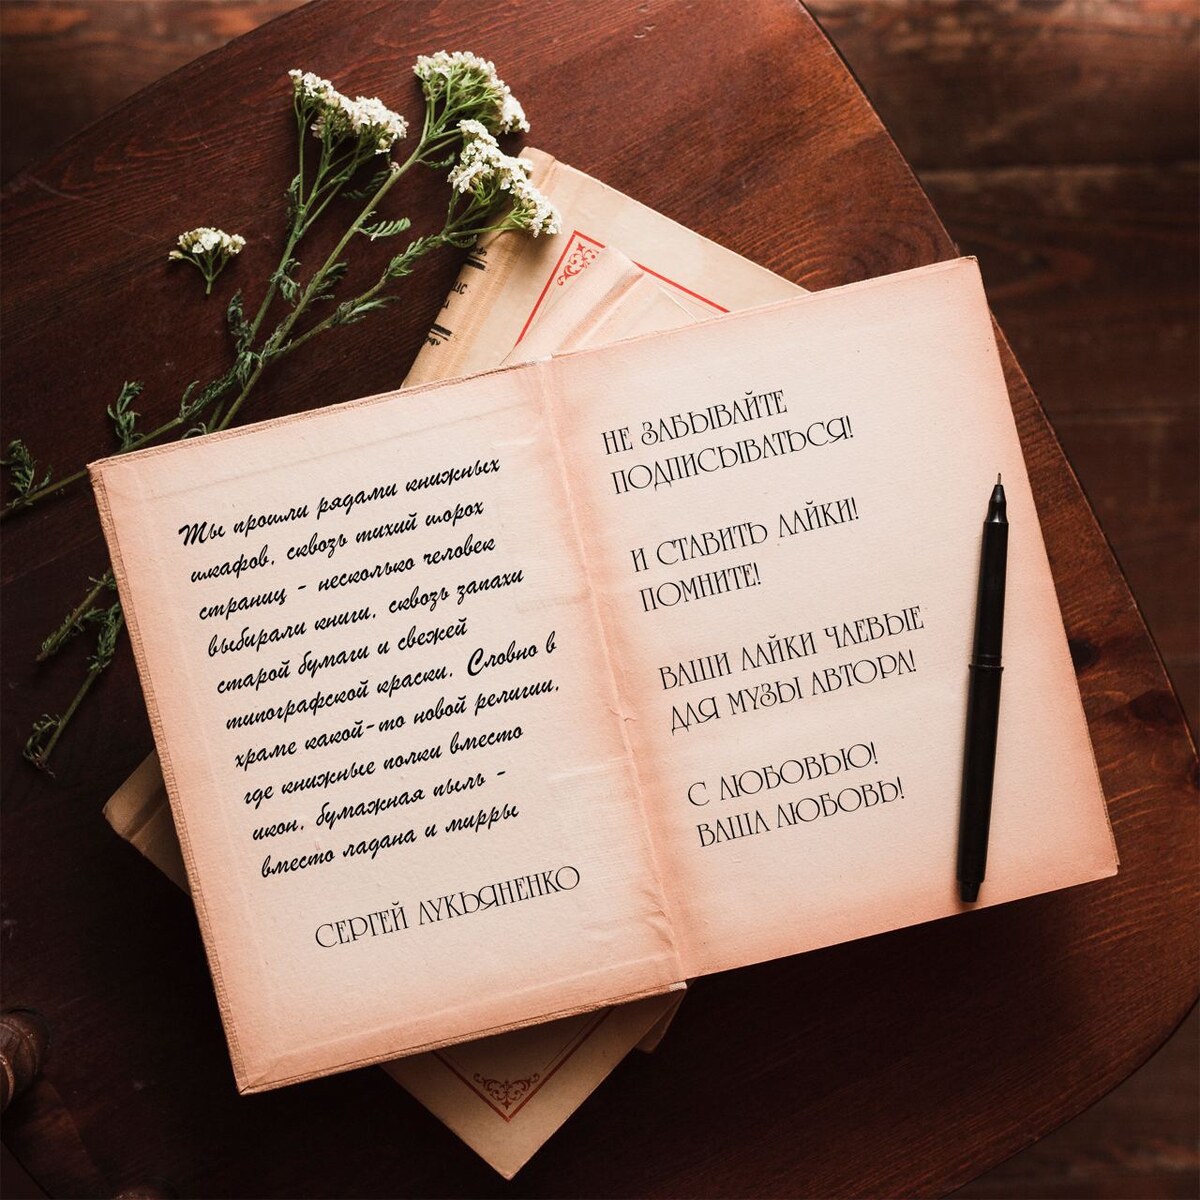 Мы прошли рядами книжных
шкафов, сквозь тихий шорох
страниц - несколько человек
выбирали книги, сквозь запахи
старой бумаги и свежей
типографской краски. Словно в
храме какой-то новой религии,
где книжные полки вместо
икон, бумажная пыль -
вместо ладана и мирры
СЕРГЕЙ ЛУКЬЯНЕНКО
НЕ ЗАБЫВАЙТЕ
ПОДПИСЫВАТЬСЯ!
И СТАВИТЬ ЛАЙКИ!
ПОМНИТЕ!
ВАШИ ЛАЙКИ ЧАЕВЫЕ
ДЛЯ МУЗЫ АВТОРА!
С ЛЮБОВЬЮ!
ВАША ЛЮБОВЬ!